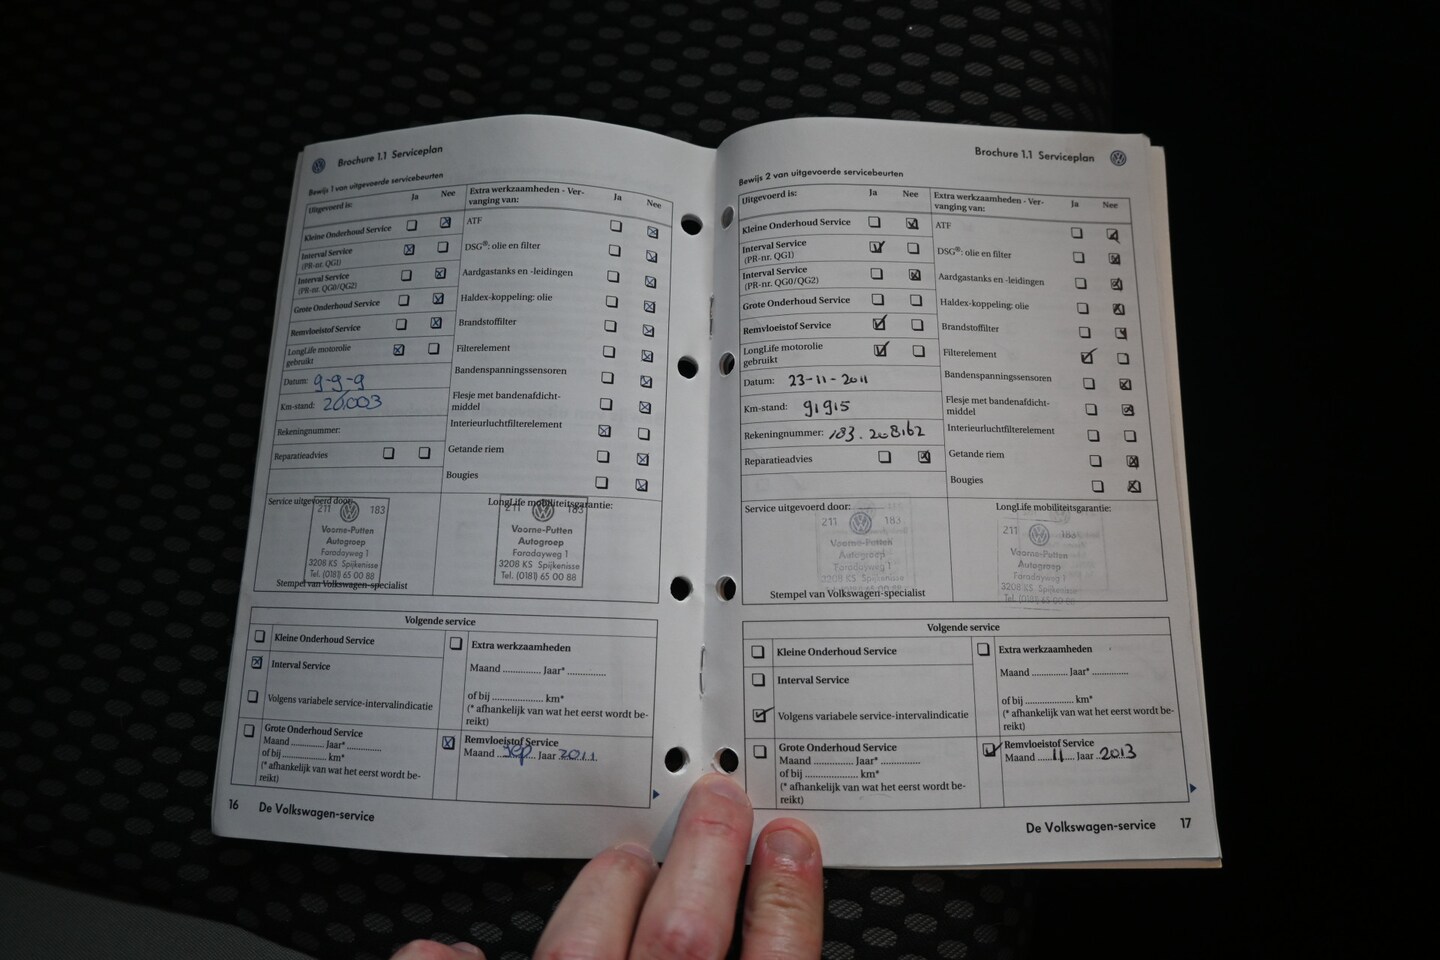 Brochure 1.1 Serviceplan
Bewijs 1 van uitgevoerde servicebeurten
Uitgevoerd is: Ja Nee
Kleine Onderhoud Service
Interval Service
(PR-nr. QG1)
Interval Service
(PR-nr. QG0/QG2)
Grote Onderhoud Service
Remvloeistof Service
LongLife motorolie
gebruikt
Datum: 9-9-9
Km-stand: 20.003
Rekeningnummer:
Reparatieadvies
Extra werkzaamheden - Ver-
vanging van: Ja Nee
ATF
DSG®: olie en filter
Aardgastanks en -leidingen
Haldex-koppeling: olie
Brandstoffilter
Filterelement
Bandenspanningssensoren
Flesje met bandenafdicht-
middel
Interieurluchtfilterelement
Getande riem
Bougies
Service uitgevoerd door:
211 183
Voorne-Putten
Autogroep
Faradayweg 1
3208 KS Spijkenisse
Tel. (0181) 65 00 88
Stempel van Volkswagen-specialist
LongLife mobiliteitsgarantie:
211 183
Voorne-Putten
Autogroep
Faradayweg 1
3208 KS Spijkenisse
Tel. (0181) 65 00 88
Volgende service
Kleine Onderhoud Service
Interval Service
Volgens variabele service-intervalindicatie
Grote Onderhoud Service
Maand ............ Jaar* ............
of bij .................... km*
(* afhankelijk van wat het eerst wordt be-
reikt)
Extra werkzaamheden
Maand ............ Jaar* ............
of bij .................... km*
(* afhankelijk van wat het eerst wordt be-
reikt)
Remvloeistof Service
Maand sep Jaar 2011
16 De Volkswagen-service
Brochure 1.1 Serviceplan
Bewijs 2 van uitgevoerde servicebeurten
Uitgevoerd is: Ja Nee
Kleine Onderhoud Service
Interval Service
(PR-nr. QG1)
Interval Service
(PR-nr. QG0/QG2)
Grote Onderhoud Service
Remvloeistof Service
LongLife motorolie
gebruikt
Datum: 23-11-2011
Km-stand: 91915
Rekeningnummer: 183.208162
Reparatieadvies
Extra werkzaamheden - Ver-
vanging van: Ja Nee
ATF
DSG®: olie en filter
Aardgastanks en -leidingen
Haldex-koppeling: olie
Brandstoffilter
Filterelement
Bandenspanningssensoren
Flesje met bandenafdicht-
middel
Interieurluchtfilterelement
Getande riem
Bougies
Service uitgevoerd door:
211 183
Voorne-Putten
Autogroep
Faradayweg 1
3208 KS Spijkenisse
Tel. (0181) 65 00 88
Stempel van Volkswagen-specialist
LongLife mobiliteitsgarantie:
211 183
Voorne-Putten
Autogroep
Faradayweg 1
3208 KS Spijkenisse
Tel. (0181) 65 00 88
Volgende service
Kleine Onderhoud Service
Interval Service
Volgens variabele service-intervalindicatie
Grote Onderhoud Service
Maand ............ Jaar* ............
of bij .................... km*
(* afhankelijk van wat het eerst wordt be-
reikt)
Extra werkzaamheden
Maand ............ Jaar* ............
of bij .................... km*
(* afhankelijk van wat het eerst wordt be-
reikt)
Remvloeistof Service
Maand 11 Jaar 2013
De Volkswagen-service 17